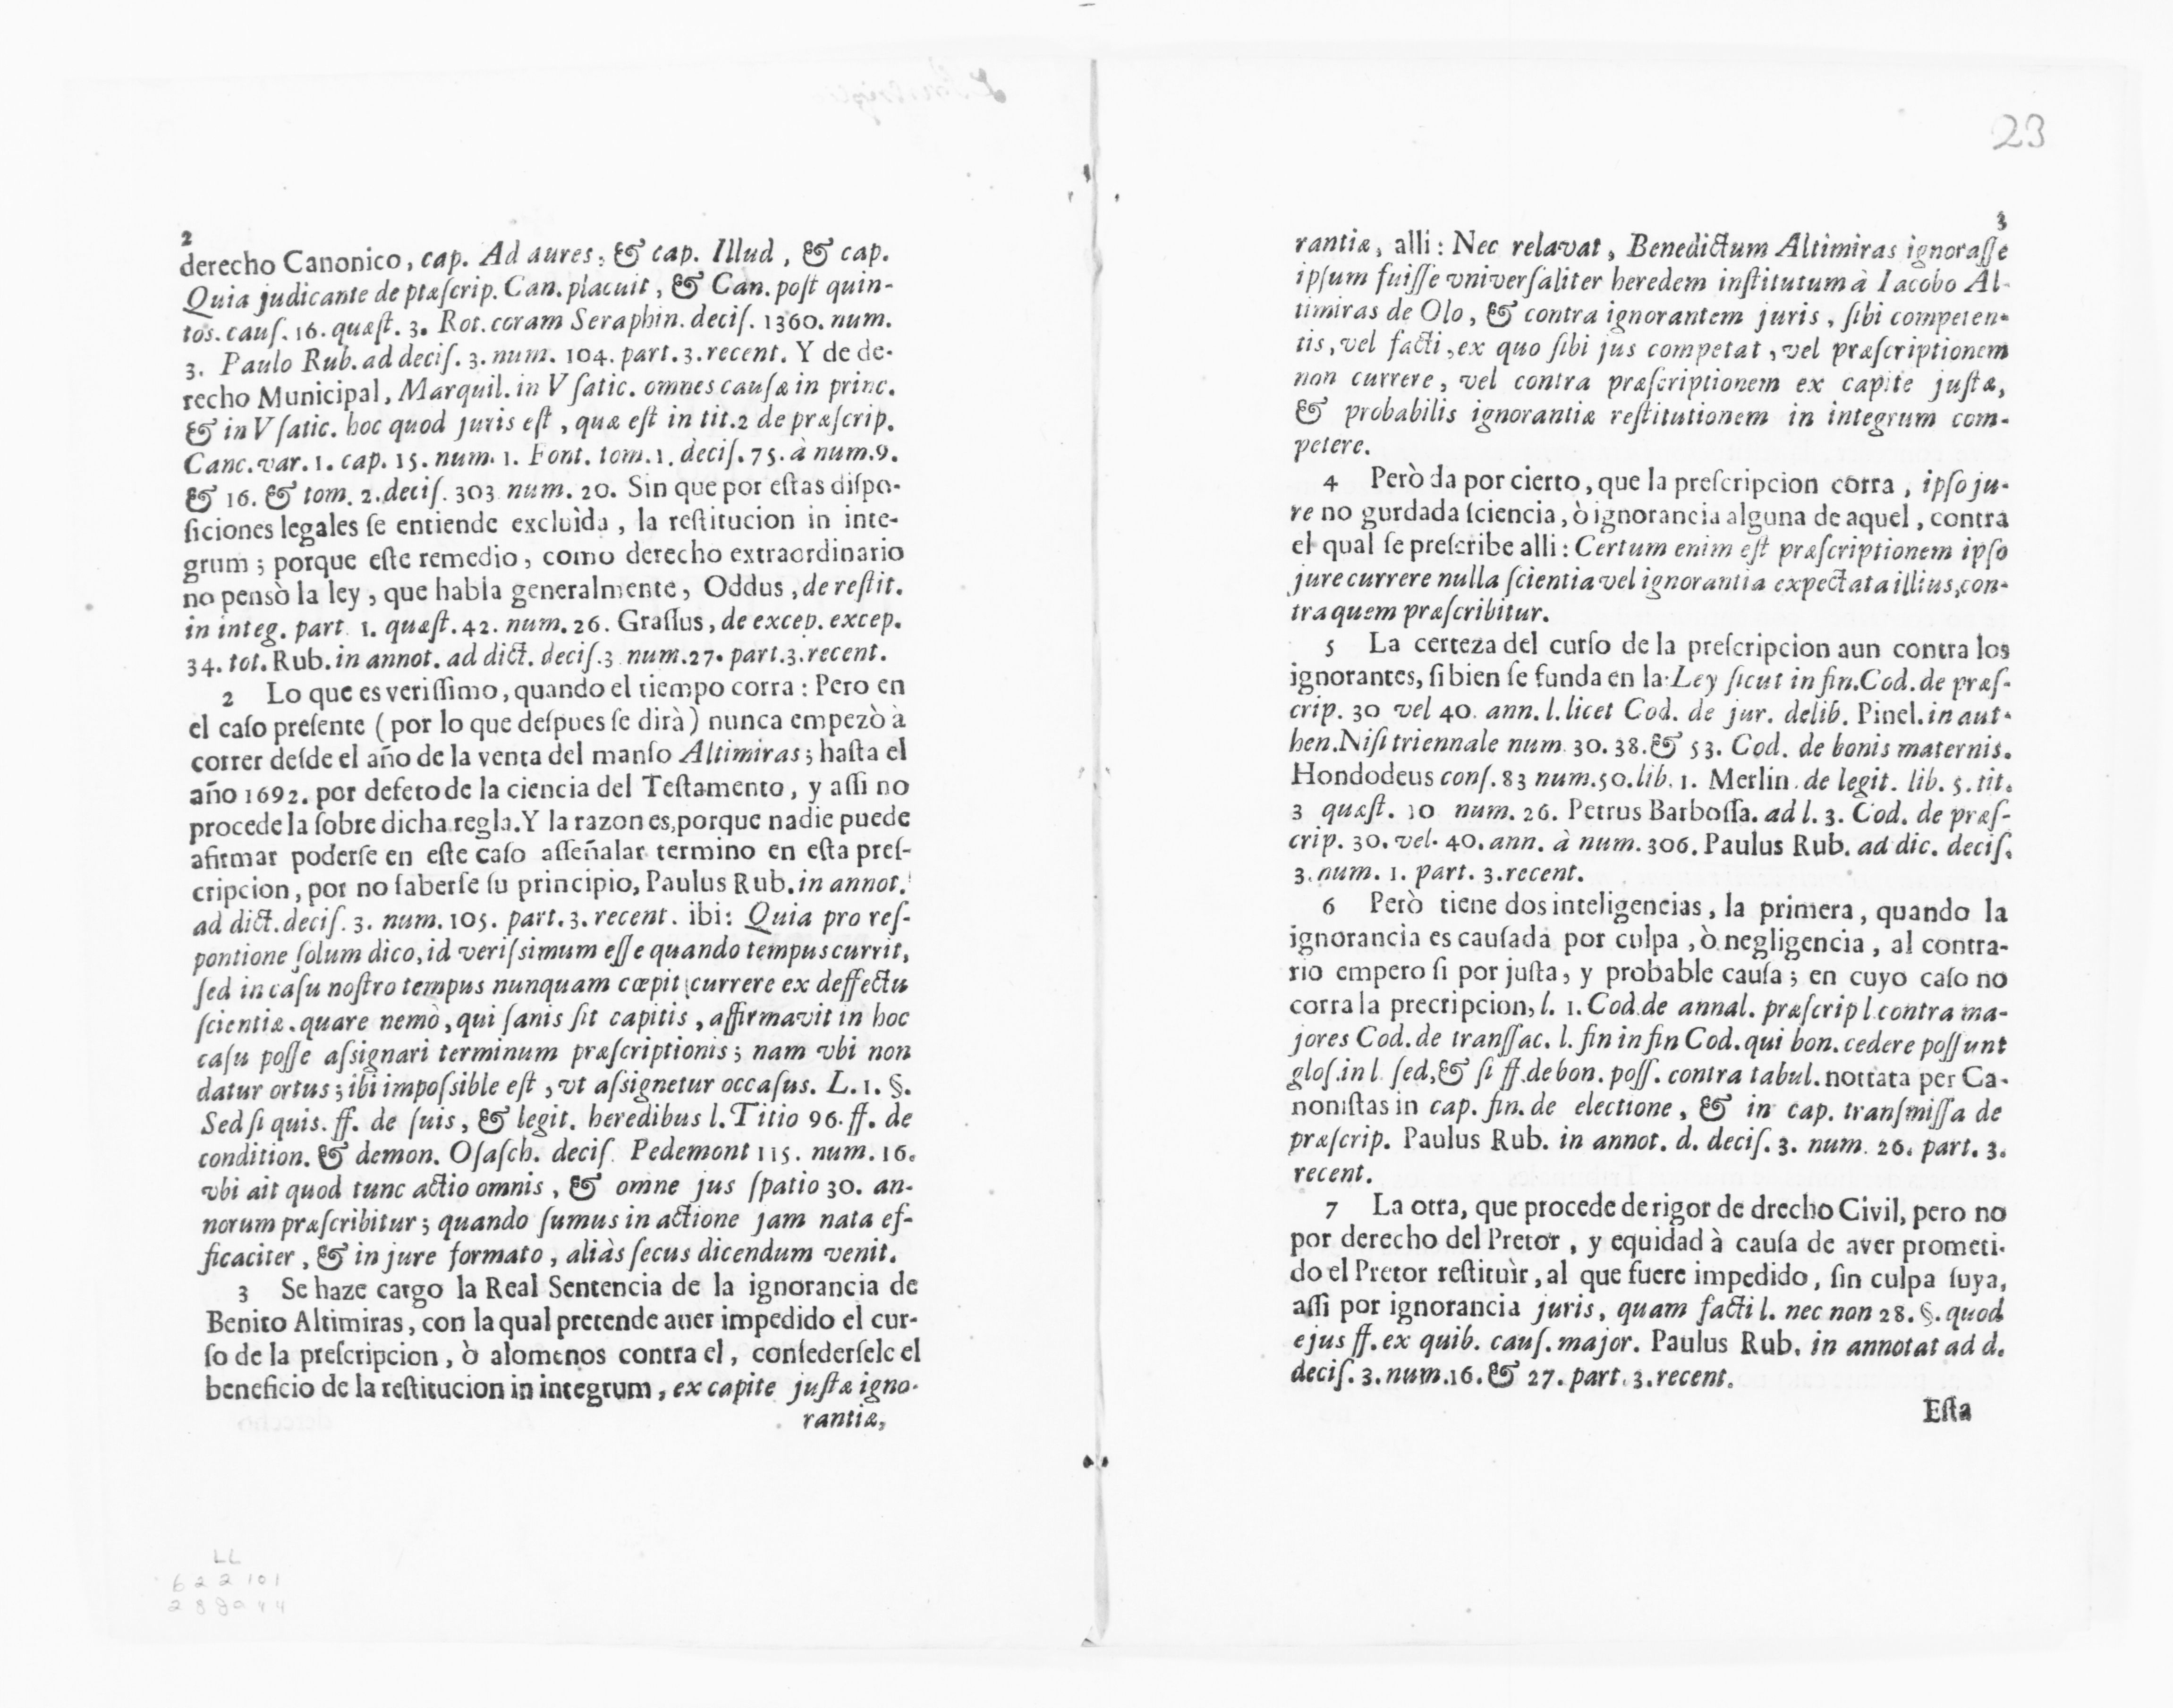 2
derecho Canonico, cap. Ad aures, & cap. Illud, & cap.
Quia judicante de ptæſcrip. Can. placuit, & Can. poſt quin-
tos. cauſ. 16. quæſt. 3. Rot. coram Seraphin. deciſ. 1360. num.
3. Paulo Rub. ad deciſ. 3. num. 104. part. 3. recent. Y de de-
recho Municipal, Marquil. in Vſatic. omnes cauſæ in princ.
& in Vſatic. hoc quod juris eſt, quæ eſt in tit. 2 de præſcrip.
Canc. var. 1. cap. 15. num. 1. Font. tom. 1. deciſ. 75. à num. 9.
& 16. & tom. 2. deciſ. 303 num. 20. Sin que por eſtas diſpo-
ſiciones legales ſe entiende excluìda, la reſtitucion in inte-
grum; porque eſte remedio, como derecho extraordinario
no pensò la ley, que habla generalmente, Oddus, de reſtit.
in integ. part. 1. quæſt. 42. num. 26. Graſſus, de excep. excep.
34. tot. Rub. in annot. ad dict. deciſ. 3 num. 27. part. 3. recent.
2 Lo que es veriſſimo, quando el tiempo corra: Pero en
el caſo preſente (por lo que deſpues ſe dirà) nunca empezò à
correr deſde el año de la venta del manſo Altimiras; haſta el
año 1692. por defeto de la ciencia del Teſtamento, y aſſi no
procede la ſobre dicha regla. Y la razon es, porque nadie puede
afirmar poderſe en eſte caſo aſſeñalar termino en eſta preſ-
cripcion, por no ſaberſe ſu principio, Paulus Rub. in annot.
ad dict. deciſ. 3. num. 105. part. 3. recent. ibi: Quia pro reſ-
pontione ſolum dico, id veriſsimum eſſe quando tempus currit,
ſed in caſu noſtro tempus nunquam cœpit currere ex deffectu
ſcientiæ. quare nemò, qui ſanis ſit capitis, affirmavit in hoc
caſu poſſe aſsignari terminum præſcriptionis; nam vbi non
datur ortus; ibi impoſsible eſt, vt aſsignetur occaſus. L. 1. §.
Sed ſi quis. ff. de ſuis, & legit. heredibus l. Titio 96. ff. de
condition. & demon. Oſaſch. deciſ. Pedemont 115. num. 16.
vbi ait quod tunc actio omnis, & omne jus ſpatio 30. an-
norum præſcribitur; quando ſumus in actione jam nata ef-
ficaciter, & in jure formato, aliàs ſecus dicendum venit.
3 Se haze cargo la Real Sentencia de la ignorancia de
Benito Altimiras, con la qual pretende auer impedido el cur-
ſo de la preſcripcion, ò alomenos contra el, conſederſele el
beneficio de la reſtitucion in integrum, ex capite juſtæ igno-
rantiæ,
23
3
rantiæ, alli: Nec relavat, Benedictum Altimiras ignoraſſe
ipſum fuiſſe vniverſaliter heredem inſtitutum à Iacobo Al-
timiras de Olo, & contra ignorantem juris, ſibi competen-
tis, vel facti, ex quo ſibi jus competat, vel præſcriptionem
non currere, vel contra præſcriptionem ex capite juſtæ,
& probabilis ignorantiæ reſtitutionem in integrum com-
petere.
4 Però da por cierto, que la preſcripcion corra, ipſo ju-
re no gurdada ſciencia, ò ignorancia alguna de aquel, contra
el qual ſe preſcribe alli: Certum enim eſt præſcriptionem ipſo
jure currere nulla ſcientia vel ignorantia expectata illius, con-
tra quem præſcribitur.
5 La certeza del curſo de la preſcripcion aun contra los
ignorantes, ſi bien ſe funda en la Ley ſicut in fin. Cod. de præſ-
crip. 30 vel 40. ann. l. licet Cod. de jur. delib. Pinel. in aut-
hen. Niſi triennale num. 30. 38. & 53. Cod. de bonis maternis.
Hondodeus conſ. 83 num. 50. lib. 1. Merlin. de legit. lib. 5. tit.
3 quæſt. 10 num. 26. Petrus Barboſſa. ad l. 3. Cod. de præſ-
crip. 30. vel. 40. ann. à num. 306. Paulus Rub. ad dic. deciſ.
3. num. 1. part. 3. recent.
6 Però tiene dos inteligencias, la primera, quando la
ignorancia es cauſada por culpa, ò negligencia, al contra-
rio empero ſi por juſta, y probable cauſa; en cuyo caſo no
corra la precripcion, l. 1. Cod. de annal. præſcrip l. contra ma-
jores Cod. de tranſſac. l. fin in fin Cod. qui bon. cedere poſſunt
gloſ. in l. ſed, & ſi ff. de bon. poſſ. contra tabul. nottata per Ca-
noniſtas in cap. fin. de electione, & in cap. tranſmiſſa de
præſcrip. Paulus Rub. in annot. d. deciſ. 3. num. 26. part. 3.
recent.
7 La otra, que procede de rigor de drecho Civil, pero no
por derecho del Pretor, y equidad à cauſa de aver prometi-
do el Pretor reſtituìr, al que fuere impedido, ſin culpa ſuya,
aſſi por ignorancia juris, quam facti l. nec non 28. §. quod
ejus ff. ex quib. cauſ. major. Paulus Rub. in annotat ad d.
deciſ. 3. num. 16. & 27. part. 3. recent.
Eſta
LL
622101